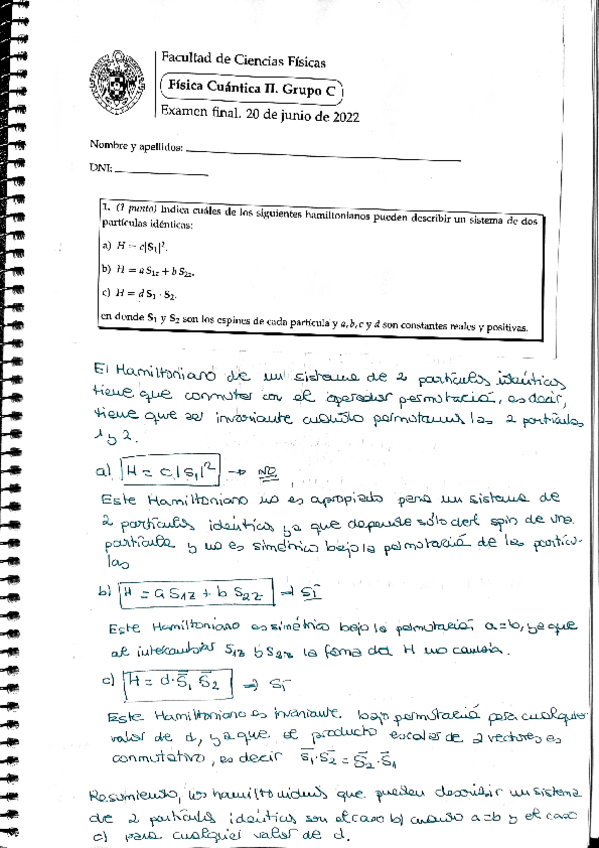 Facultad de Ciencias Físicas
Física Cuántica II. Grupo C
Examen final. 20 de junio de 2022
Nombre y apellidos:
DNI:
1. (1 punto) Indica cuáles de los siguientes hamiltonianos pueden describir un sistema de dos
partículas idénticas:
a) H = c|S₁|².
b) H = a S₁z + b S₂z.
c) H = d S₁ · S₂.
en donde S₁ y S₂ son los espines de cada partícula y a, b, c y d son constantes reales y positivas.
El Hamiltoniano de un sistema de 2 partículas idénticas
tiene que conmutar con el operador permutación, es decir,
tiene que ser invariante cuando permutamos las 2 partículas
1 y 2.
a) H = c|S₁|² → NO
Este Hamiltoniano no es apropiado para un sistema de
2 partículas idénticas ya que depende sólo del spin de una
partícula y no es simétrico bajo la permutación de las partícu-
las
b) H = a S₁z + b S₂z → SÍ
Este Hamiltoniano es simétrico bajo la permutación a=b, ya que
al intercambiar S₁z b S₂z la forma del H no cambia.
c) H = d · S̄₁ S̄₂ → SÍ
Este Hamiltoniano es invariante bajo permutación para cualquier
valor de d, ya que el producto escalar de 2 vectores es
conmutativo, es decir S̄₁·S̄₂ = S̄₂·S̄₁
Resumiendo, los hamiltonianos que pueden describir un sistema
de 2 partículas idénticas son el caso b) cuando a=b y el caso
c) para cualquier valor de d.